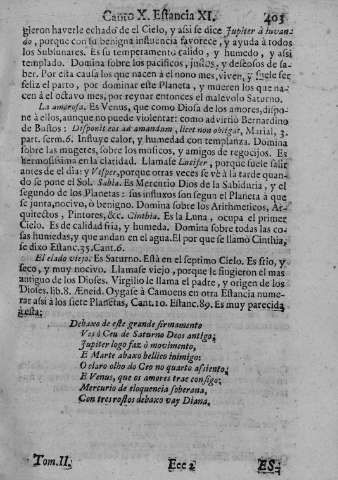 Canto X. Estancia XI. 403
gieron haverle echado de el Cielo, y assi se dice Jupiter à iuvan-
do, porque con su benigna influencia favorece, y ayuda à todos
los Sublunares. Es su temperamento calido, y humedo, y assi
templado. Domina sobre los pacificos, justos, y deseosos de sa-
ber. Por esta causa los que nacen à el nono mes, viven, y suele ser
feliz el parto, por dominar este Planeta, y mueren los que na-
cen à el octavo mes, por reynar entonces el malevolo Saturno.
La amorosa. Es Venus, que como Diosa de los amores, dispo-
ne à ellos, aunque no puede violentar: como advirtiò Bernardino
de Bustos: Disponit eas ad amandum, licet non obligat, Marial, 3.
part. serm. 6. Influye calor, y humedad con templanza. Domina
sobre las mugeres, sobre los musicos, y amigos de regocijos. Es
hermosissima en la claridad. Llamase Lucifer, porque suele salir
antes de el dia: y Vesper, porque otras veces se vè à la tarde quan-
do se pone el Sol. Sabia. Es Mercurio Dios de la Sabiduria, y el
segundo de los Planetas: sus influxos son segun el Planeta à que
se junta, nocivo, ò benigno. Domina sobre los Arithmeticos, Ar-
quitectos, Pintores, &c. Cinthia. Es la Luna, ocupa el primer
Cielo. Es de calidad fria, y humeda. Domina sobre todas las co-
sas humedas, y que andan en el agua. El por que se llamo Cinthia,
se dixo Estanc. 35. Cant. 6.
El elado viejo. Es Saturno. Està en el septimo Cielo. Es frio, y
seco, y muy nocivo. Llamase viejo, porque le fingieron el mas
antiguo de los Dioses. Virgilio le llama el padre, y origen de los
Dioses. lib. 8. Æneid. Oygase à Camoens en otra Estancia nume-
rar assi à los siete Planetas, Cant. 10. Estanc. 89. Es muy parecida
à esta:
Debaxo de este grande firmamento
Ves ò Ceu de Saturno Deos antigo;
Jupiter logo faz ò movimento,
E Marte abaxo bellico inimigo:
O claro olho do Ceo no quarto assiento;
E Venus, que os amores trae consigo;
Mercurio de eloquencia soberana,
Con tres rostos debaxo vay Diana.
Tom. II. Eee 2 ES-